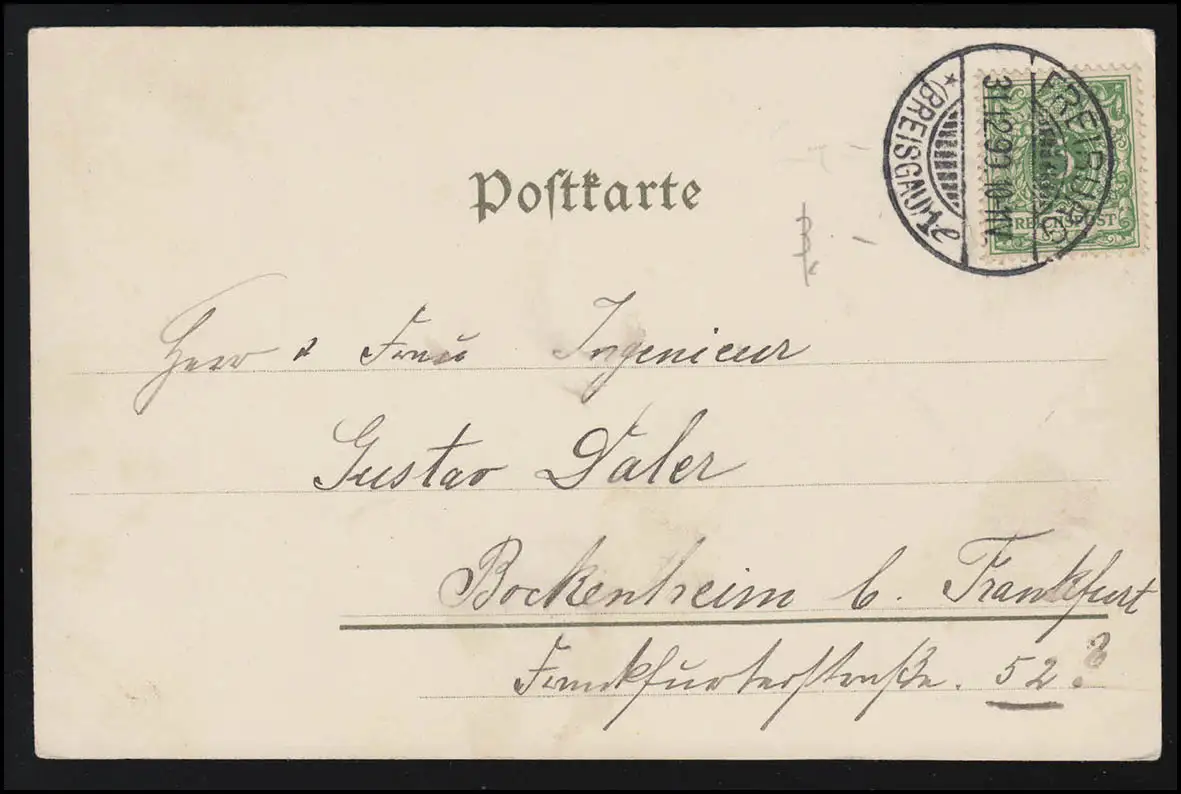 Postkarte
FREIBURG
31.12.99. 10-11V.
* (BREISGAU)
REICHSPOST
Herr & Frau Ingenieur
Gustav Daler
Bockenheim b. Frankfurt
Frankfurterstraße. 52.